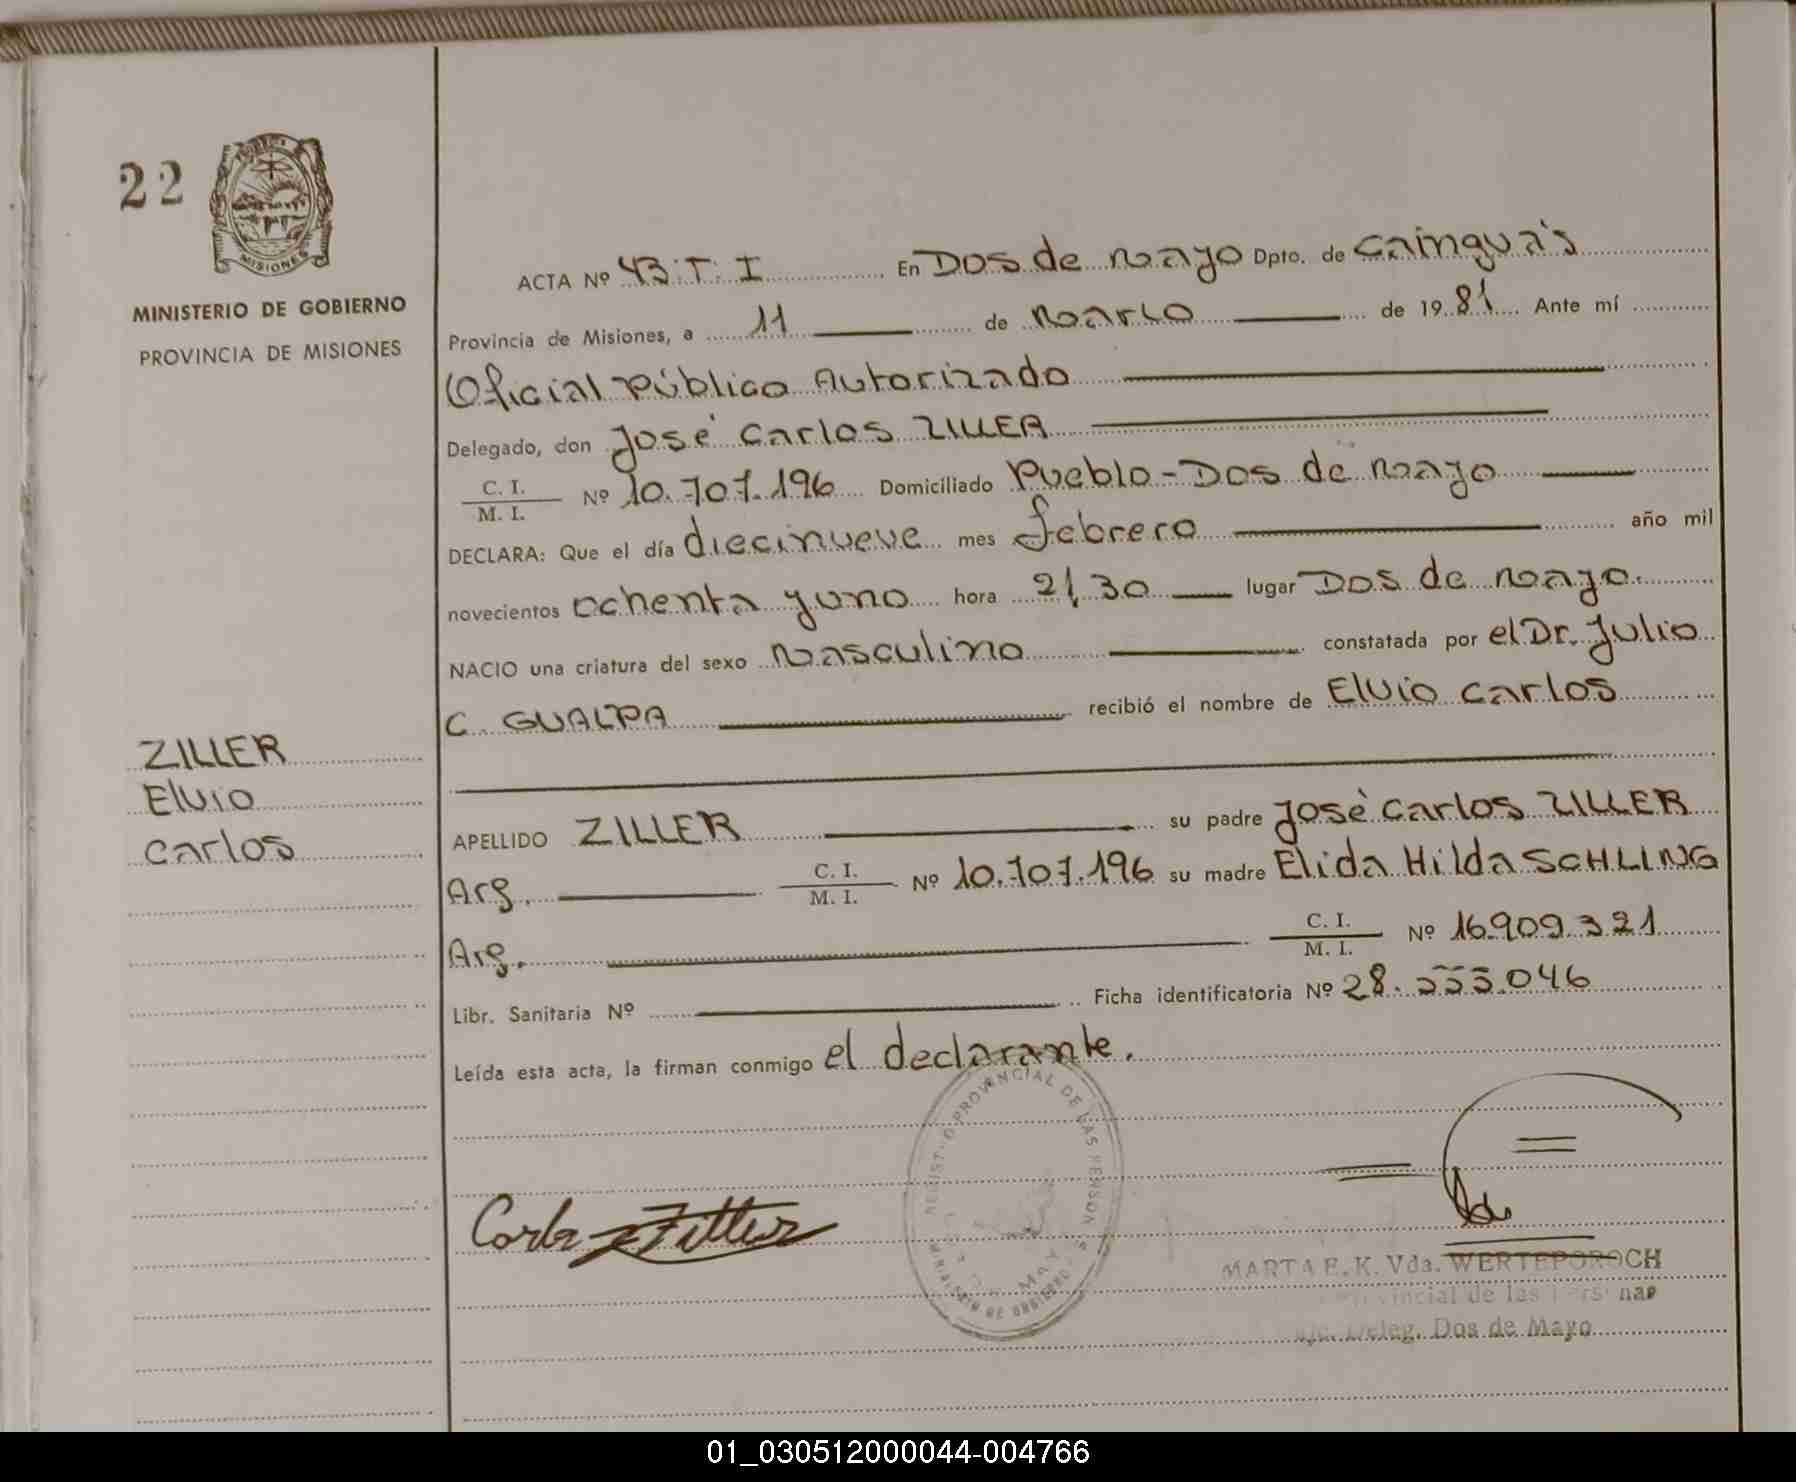 22
MISIONES
MINISTERIO DE GOBIERNO
PROVINCIA DE MISIONES
ZILLER
Elvio
Carlos
ACTA Nº 43. T. I En Dos de Mayo Dpto. de Cainguás
Provincia de Misiones, a 11 de Marzo de 1981 Ante mí
Oficial Público Autorizado
Delegado, don José Carlos ZILLER
C. I.
M. I. Nº 10.707.196 Domiciliado Pueblo - Dos de Mayo
DECLARA: Que el día diecinueve mes febrero año mil
novecientos ochenta y uno hora 21,30 lugar Dos de Mayo.
NACIO una criatura del sexo Masculino constatada por el Dr. Julio
C. GUALPA recibió el nombre de Elvio Carlos
APELLIDO ZILLER su padre José Carlos ZILLER
Arg. C. I.
M. I. Nº 10.707.196 su madre Elida Hilda SCHLING
Arg. C. I.
M. I. Nº 16.909.321
Libr. Sanitaria Nº Ficha identificatoria Nº 28.555.046
Leída esta acta, la firman conmigo el declarante.
PROVINCIAL DE LAS PERSONAS
Ziller
MARTA E. K. Vda. WERTEPOROCH
Provincial de las Personas
Deleg. Dos de Mayo
01_030512000044-004766